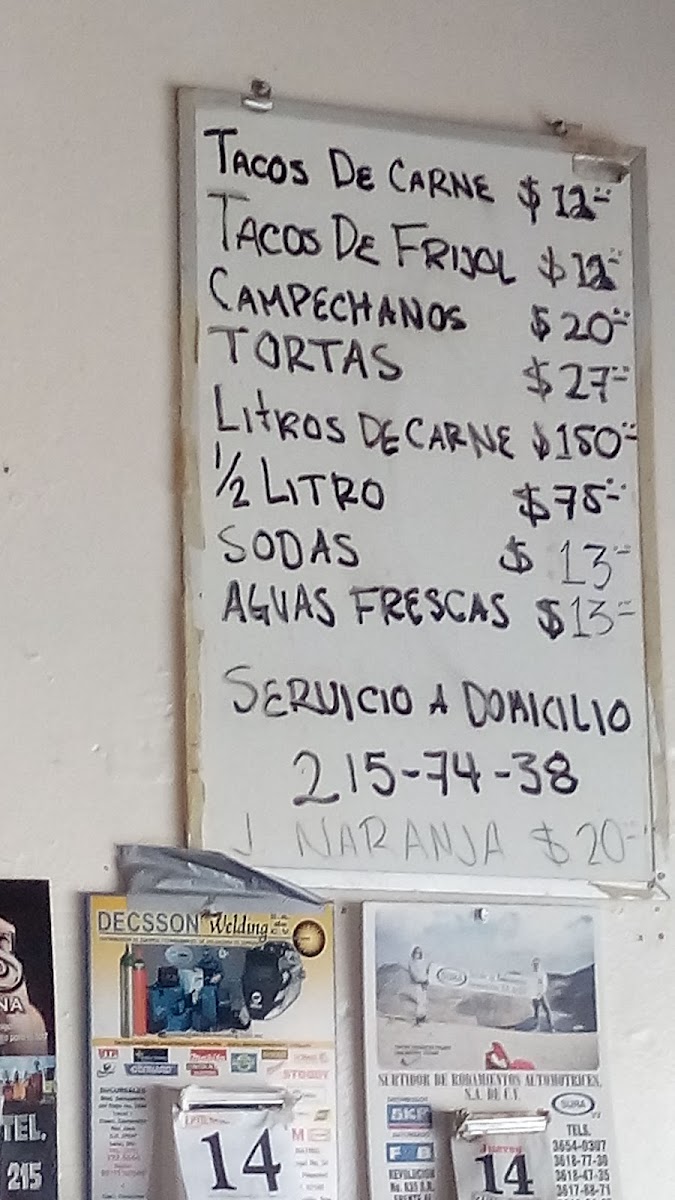 TACOS DE CARNE $12
TACOS DE FRIJOL $12
CAMPECHANOS $20
TORTAS $27
LITROS DE CARNE $150
1/2 LITRO $75
SODAS $13
AGUAS FRESCAS $13
SERVICIO A DOMICILIO
215-74-38
J NARANJA $20
DECSSON Welding S.A. de C.V.
makita
SUCURSALES
14
SURTIDOR DE RODAMIENTOS AUTOMOTRICES,
S.A. DE C.V.
SURA
SKF
TELS.
3654-0307
3618-77-30
3618-47-35
3617-88-71
REVOLUCION
Jueves
14
NA
TEL.
215